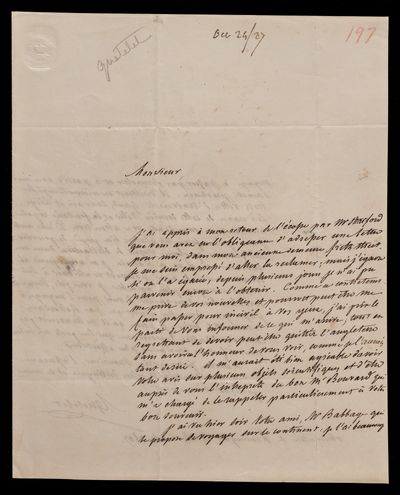 Oct 24/27
197
Quetelet
Monsieur
J'ai appris à mon retour de l'écosse par Mr
que vous avez eu l'obligeance d'adresser une lettre
pour moi, dans mon ancienne demeure, Frith Street.
je me suis empressé d'aller la réclamer; mais j'ignore
si on l'a égarée, depuis plusieurs jours je n'ai pu
parvenir encore à l'obtenir. Comme ce contretems
me prive de vos nouvelles et pourrait peut être me
faire passer pour incivil à vos yeux, j'ai pris le
parti de vous informer de ce qui m'arrive; tout en
regrettant de devoir peut être quitter l'angleterre
sans avoir l'honneur de vous voir, comme je l'aurais
tant désiré. il m'aurait été bien agréable d'avoir
votre avis sur plusieurs objets scientifiques et d'être
auprès de vous l'interprète du bon Mr Bouvard qui
m'a chargé de le rappeler particulièrement à votre
bon souvenir.
J'ai vu hier soir votre ami, Mr Babbage qui
se propose de voyager sur le continent. je l'ai beaucoup